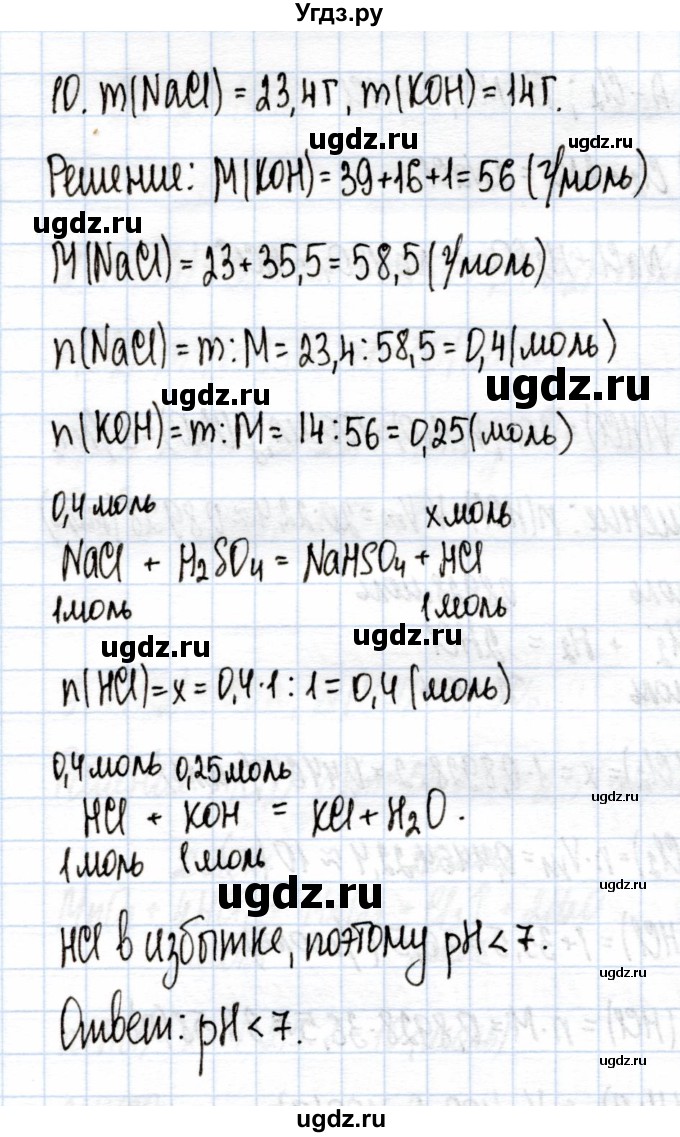 Угдз.ру
10. m(NaCl) = 23,4г, m(KOH) = 14г.
ugdz.ru ugdz.ru
Решение: M(KOH) = 39+16+1 = 56 (г/моль)
ugdz.ru
M(NaCl) = 23+35,5 = 58,5 (г/моль)
n(NaCl) = m:M = 23,4:58,5 = 0,4 (моль)
ugdz.ru ugdz.ru
n(KOH) = m:M = 14:56 = 0,25 (моль)
0,4 моль x моль
NaCl + H2SO4 = NaHSO4 + HCl
1 моль 1 моль
ugdz.ru ugdz.ru
n(HCl) = x = 0,4·1:1 = 0,4 (моль)
0,4 моль 0,25 моль
ugdz.ru
HCl + KOH = KCl + H2O.
1 моль 1 моль
ugdz.ru ugdz.ru
HCl в избытке, поэтому pH < 7.
ugdz.ru
Ответ: pH < 7.
ugdz.ru
ugdz.ru